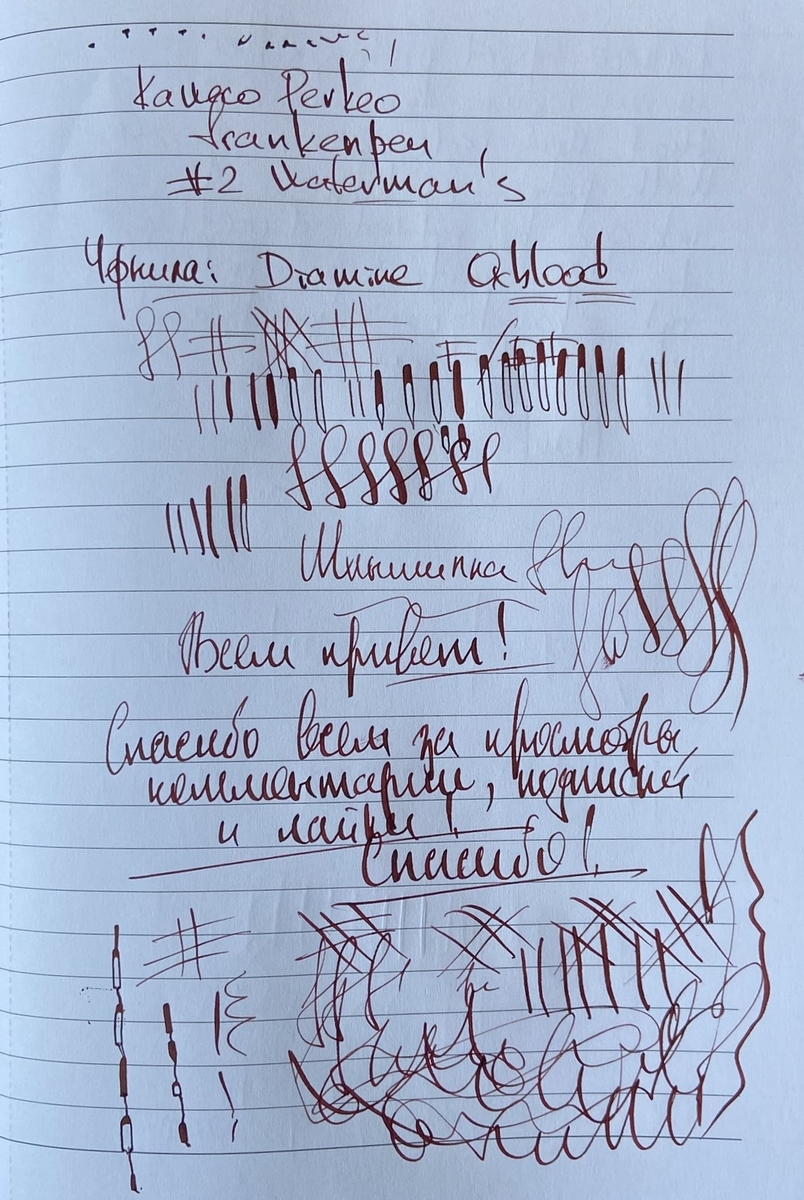 Kaweco Perkeo
frankenpen
#2 Waterman's
Чернила: Diamine Oxblood
Всем привет!
Спасибо всем за просмотры,
комментарии, подписки
и лайки!
Спасибо!